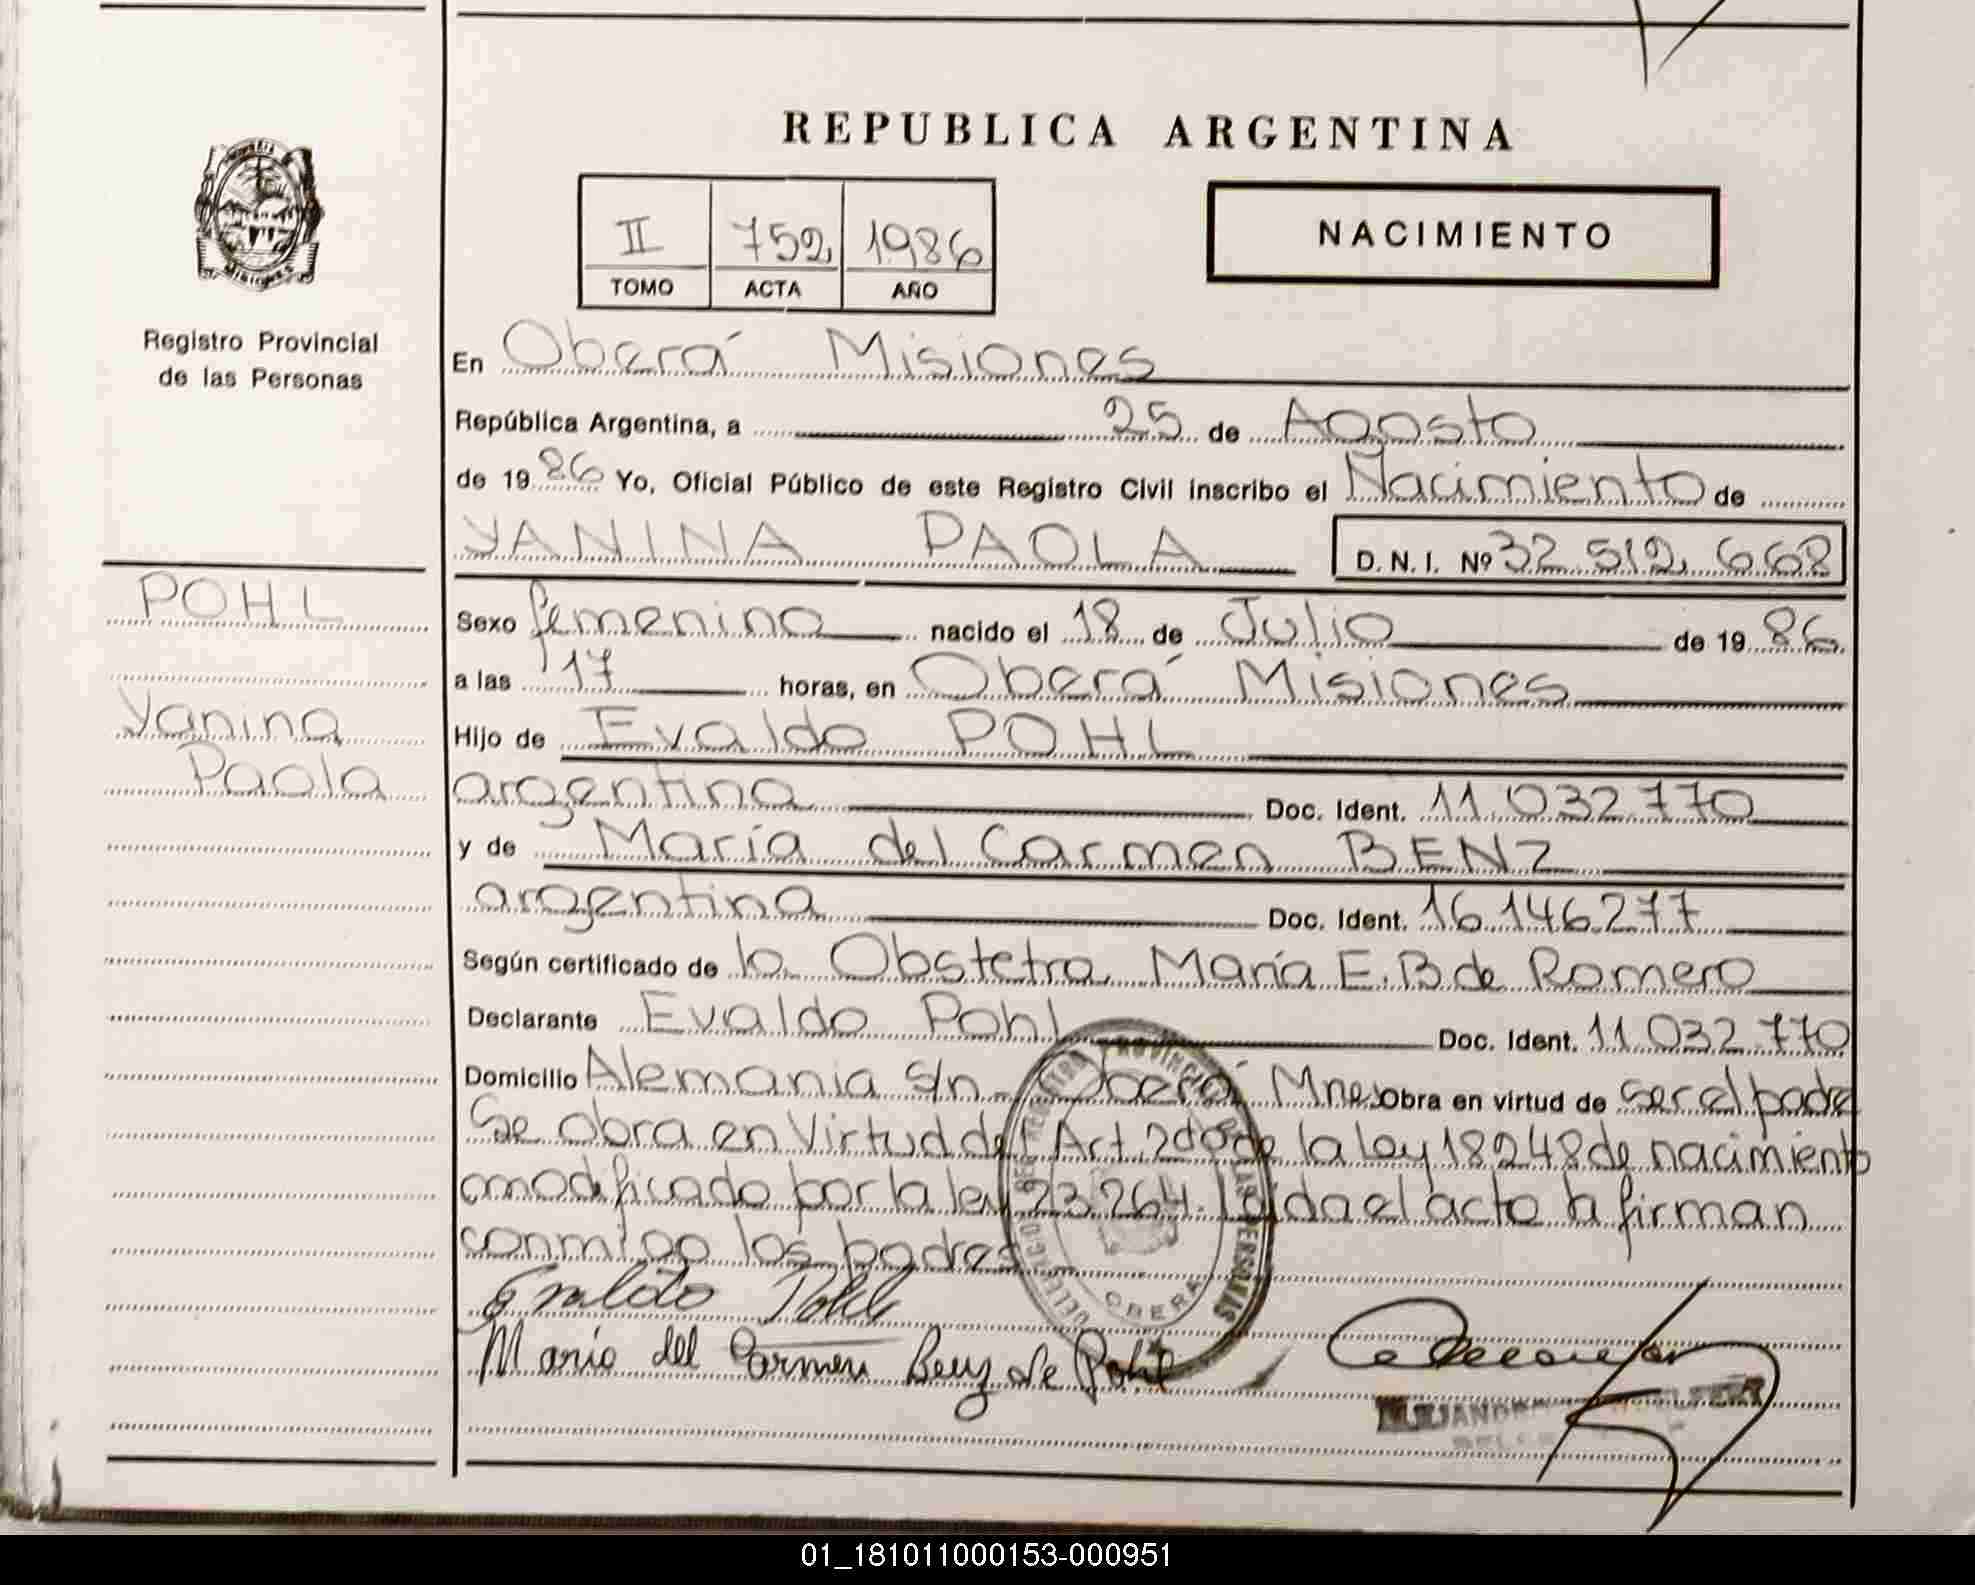 REPUBLICA ARGENTINA
II 752 1986
TOMO ACTA AÑO
NACIMIENTO
Registro Provincial
de las Personas
En Oberá Misiones
República Argentina, a 25 de Agosto
de 1986 Yo, Oficial Público de este Registro Civil inscribo el Nacimiento de
YANINA PAOLA D. N. I. Nº 32.512.668
POHL
Yanina
Paola
Sexo femenino nacido el 18 de Julio de 1986
a las 17 horas, en Oberá Misiones
Hijo de Evaldo POHL
argentina Doc. Ident. 11.032.770
y de María del Carmen BENZ
argentina Doc. Ident. 16.146.277
Según certificado de la Obstetra María E. B de Romero
Declarante Evaldo Pohl Doc. Ident. 11.032.770
Domicilio Alemania s/n Oberá Mnes Obra en virtud de ser el padre
Se obra en Virtud del Art. 2do de la ley 18248 de nacimiento
modificado por la ley 23.264. Leída el acta la firman
conmigo los padres
Evaldo Pohl
María del Carmen Benz de Pohl
REGISTRO PROVINCIAL DE LAS PERSONAS
OBERA
01_181011000153-000951